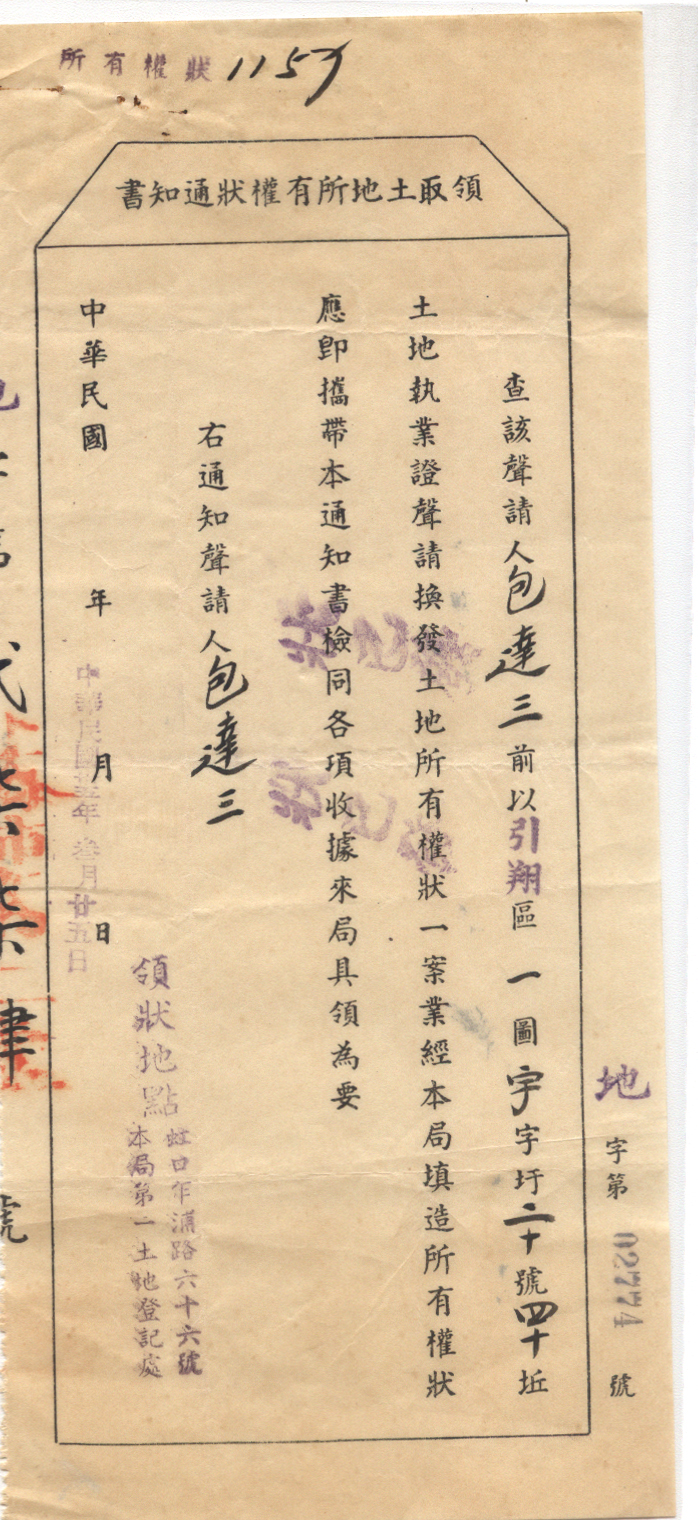 所有權狀 1157
領取土地所有權狀通知書
地字第 02774 號
查該聲請人包達三前以引翔區一圖宇字圩二十號四十坵
土地執業證聲請換發土地所有權狀一案業經本局填造所有權狀
應即攜帶本通知書檢同各項收據來局具領為要
右通知聲請人包達三
領狀地點
虹口乍浦路六十六號
本局第一土地登記處
中華民國 年 月 日
中華民國卅五年叁月廿五日